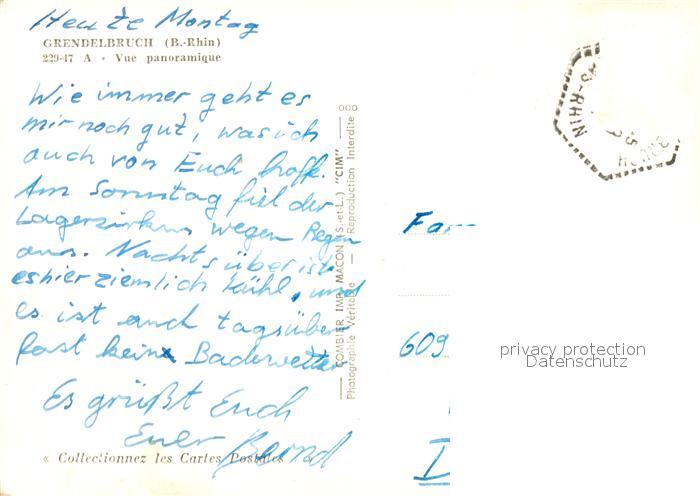 Heute Montag
GRENDELBRUCH (B.-Rhin)
229-47 A • Vue panoramique
Wie immer geht es
mir noch gut, was ich
auch von Euch hoffe.
Am Sonntag fiel der
Lagerzirkus wegen Regen
aus. Nachts über ist
es hier ziemlich kühl, und
es ist auch tagsüber
fast kein Badewetter
Es grüßt Euch
Euer Bernd
« Collectionnez les Cartes Postales »
COMBIER IMP. MACON (S.-et-L.) "CIM"
Photographie Véritable — Reproduction Interdite
Fam
609
D
RHIN
privacy protection
Datenschutz